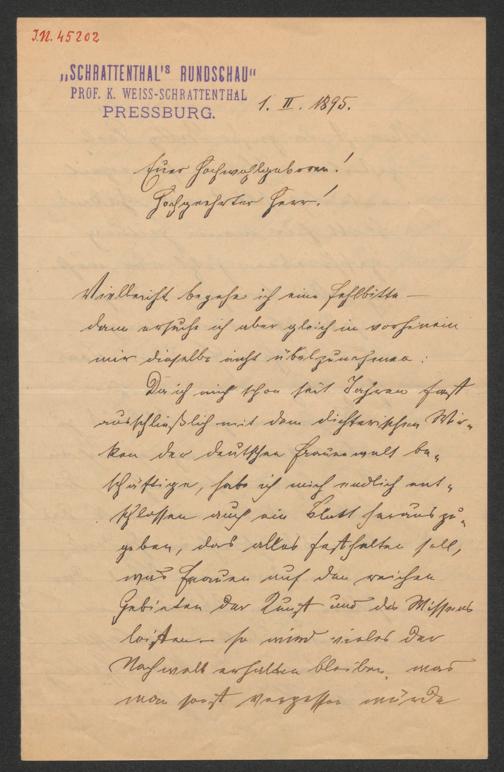 J.N. 45202
„SCHRATTENTHAL's RUNDSCHAU"
PROF. K. WEISS-SCHRATTENTHAL
PRESSBURG.
1. II. 1895.
Euer Hochwohlgeboren!
Hochgeehrter Herr!
Vielleicht begehe ich eine Fehlbitte –
dann ersuche ich aber gleich im vorhinein
mir dieselbe nicht übelzunehmen:
Da ich mich schon seit Jahren fast
ausschließlich mit dem dichterischen Wir-
ken der deutschen Frauenwelt be-
schäftige, habe ich mich endlich ent-
schlossen auch ein Blatt herauszu-
geben, das alles festhalten soll,
was Frauen auf den reichen
Gebieten der Kunst und des Wissens
leisten – so wird vieles der
Nachwelt erhalten bleiben, was
man sonst vergessen würde